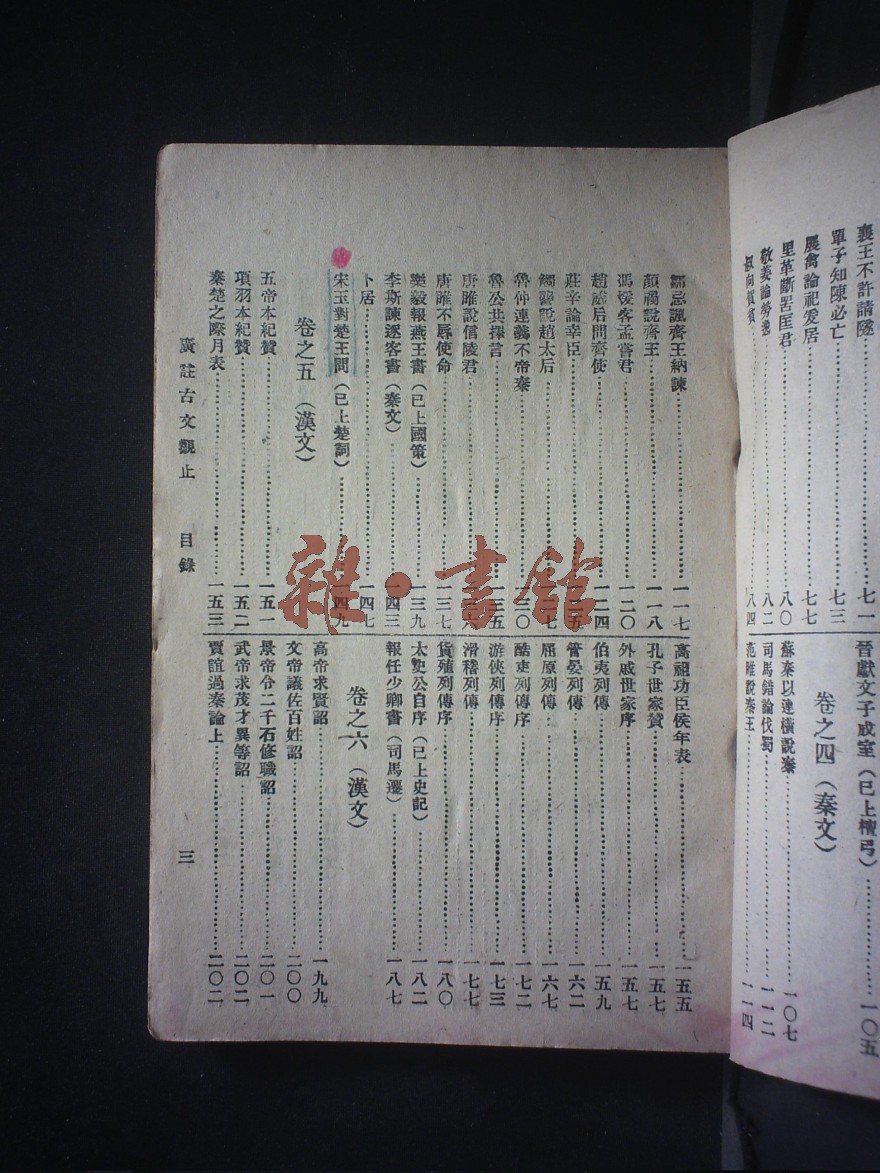 襄王不許請隧……七一
單子知陳必亡……七三
展禽論祀爰居……七七
里革斷罟匡君……八〇
敬姜論勞逸……八二
叔向賀貧……八四
晉獻文子成室(已上檀弓)……一〇五
卷之四(秦文)
蘇秦以連橫說秦……一〇七
司馬錯論伐蜀……一一二
范雎說秦王……一一四
鄒忌諷齊王納諫……一一七
顏斶說齊王……一一八
馮煖客孟嘗君……一二〇
趙威后問齊使……一二四
莊辛論幸臣……一二五
觸讋說趙太后……一二七
魯仲連義不帝秦……一三〇
魯公共擇言……一三五
唐雎說信陵君……一三六
唐雎不辱使命……一三七
樂毅報燕王書(已上國策)……一三九
李斯諫逐客書(秦文)……一四三
卜居……一四七
宋玉對楚王問(已上楚詞)……一四九
卷之五(漢文)
五帝本紀贊……一五一
項羽本紀贊……一五二
秦楚之際月表……一五三
高祖功臣侯年表……一五五
孔子世家贊……一五七
外戚世家序……一五七
伯夷列傳……一五九
管晏列傳……一六二
屈原列傳……一六七
酷吏列傳序……一七二
游俠列傳序……一七三
滑稽列傳……一七七
貨殖列傳序……一八〇
太史公自序(已上史記)……一八二
報任少卿書(司馬遷)……一八七
卷之六(漢文)
高帝求賢詔……一九九
文帝議佐百姓詔……二〇〇
景帝令二千石修職詔……二〇一
武帝求茂才異等詔……二〇二
賈誼過秦論上……二〇二
廣註古文觀止 目錄 三
雜·書館